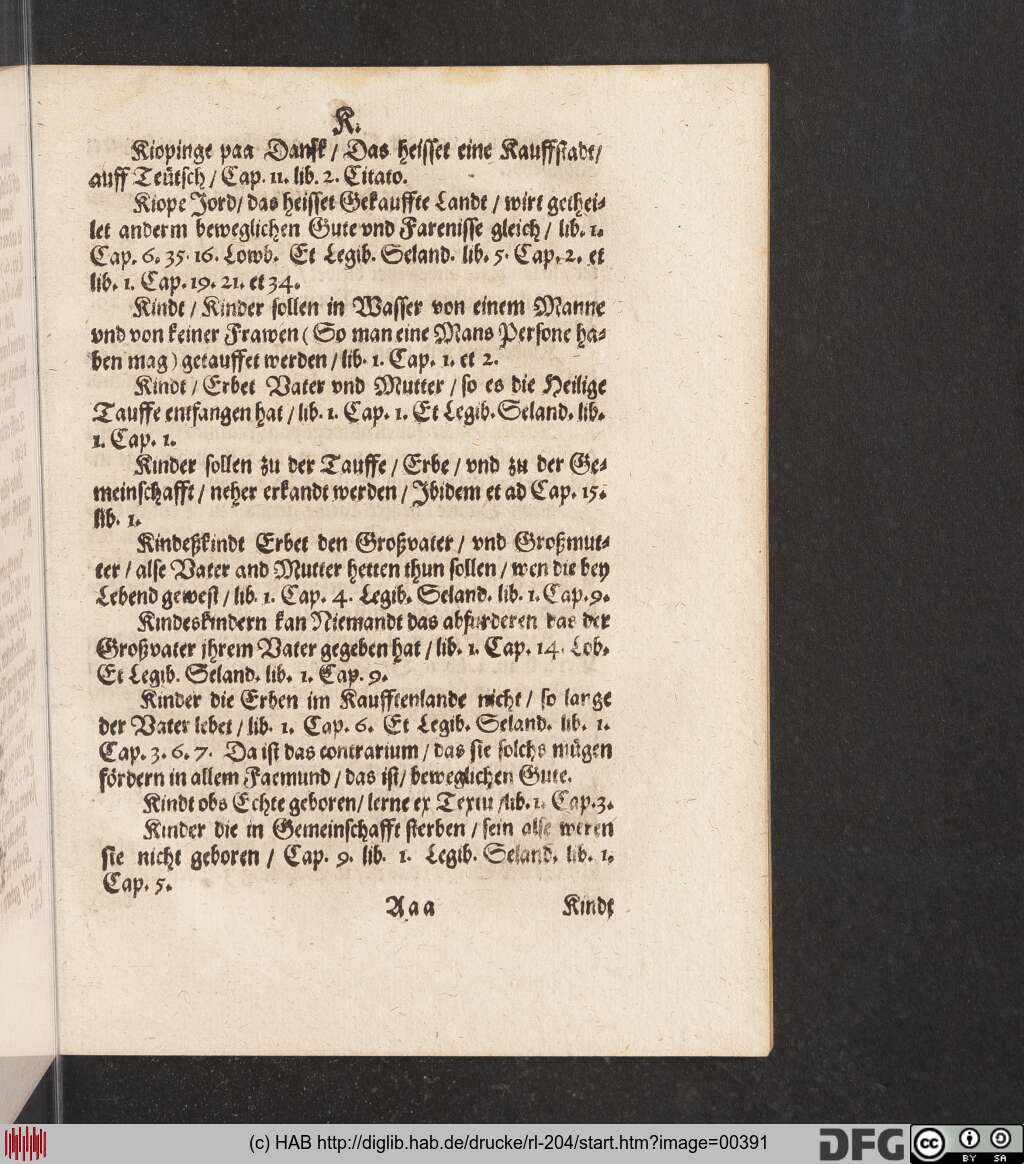 K.
Kiopinge paa Dansk / Das heisset eine Kauffstadt/
auff Teütsch / Cap. 11. lib. 2. Citato.
Kiope Jord/ das heisset Gekauffte Landt / wirt gethei-
let anderm beweglichen Gute vnd Farenisse gleich / lib. 1.
Cap. 6. 35. 16. Lowb. Et Legib. Seland. lib. 5. Cap. 2. et
lib. 1. Cap. 19. 21. et 34.
Kindt / Kinder sollen in Wasser von einem Manne
vnd von keiner Frawen (So man eine Mans Persone ha-
ben mag) getauffet werden / lib. 1. Cap. 1. et 2.
Kindt / Erbet Vater vnd Mutter / so es die Heilige
Tauffe entfangen hat / lib. 1. Cap. 1. Et Legib. Seland. lib.
1. Cap. 1.
Kinder sollen zu der Tauffe / Erbe / vnd zu der Ge-
meinschafft / neher erkandt werden / Ibidem et ad Cap. 15.
lib. 1.
Kindeßkindt Erbet den Großvater / vnd Großmut-
ter / alse Vater and Mutter hetten thun sollen / wen die bey
Lebend gewest / lib. 1. Cap. 4. Legib. Seland. lib. 1. Cap. 9.
Kindeskindern kan Niemandt das abfurderen das der
Großvater jhrem Vater gegeben hat / lib. 1. Cap. 14. Lob.
Et Legib. Seland. lib. 1. Cap. 9.
Kinder die Erben im Kaufftenlande nicht / so lange
der Vater lebet / lib. 1. Cap. 6. Et Legib. Seland. lib. 1.
Cap. 3. 6. 7. Da ist das contrarium / das sie solchs mügen
fördern in allem Faemund / das ist / beweglichen Gute.
Kindt obs Echte geboren / lerne ex Textu / lib. 1. Cap. 3.
Kinder die in Gemeinschafft sterben / sein alse weren
sie nicht geboren / Cap. 9. lib. 1. Legib. Seland. lib. 1.
Cap. 5.
Aaa Kindt
(c) HAB http://diglib.hab.de/drucke/rl-204/start.htm?image=00391
DFG cc BY SA